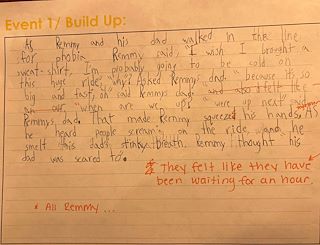 Event 1/ Build Up:
As Remmy and his dad walked in the line
for phobia Remmy said, I wish I brought a
sweat-shirt, I'm probably going to be cold on
this huge ride." why? Asked Remmys dad. "because its so
big and fast, oh said Remmys dad. and also I felt like
an our. "when are we up? "were up next said
Remmys, dad. That made Remmy squeeze his hands, As
he heard people screaming on the ride, and he
smelt this dads stinky breath. Remmy thought his
dad was scared to.
* They felt like they have
been waiting for an hour.
* All Remmy ...